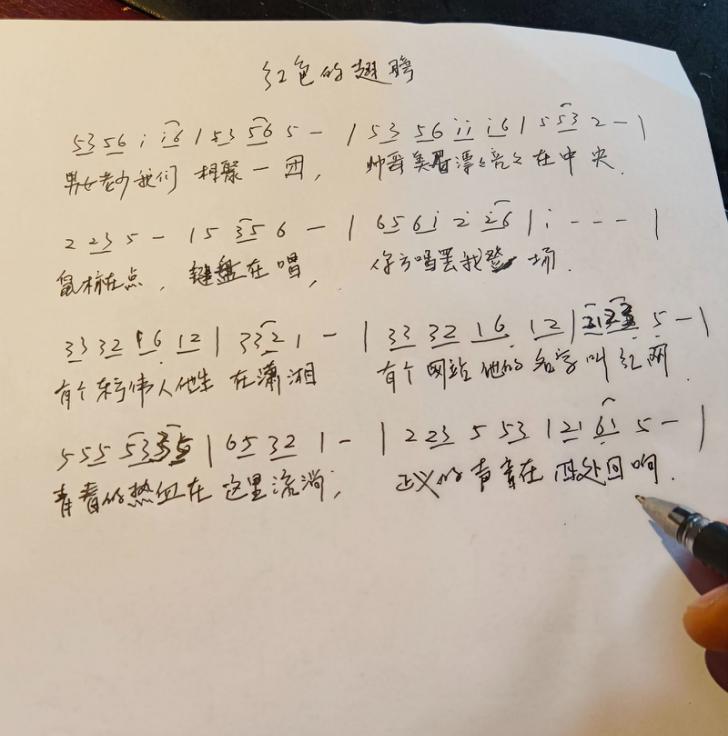 红色的翅膀
5 3 5 6 i i 6 | 5 3 5 6 5 - | 5 3 5 6 i i i 6 | 5 5 3 2 - |
男女老少我们 相聚一团, 帅哥美眉漂々亮々在中央.
2 2 3 5 - 1 5 3 5 6 - | 6 5 6 i 2 2 6 | i - - - |
鼠标在点, 键盘在唱, 你方唱罢我登场.
3 3 3 2 1 6 1 2 | 3 3 2 1 - | 3 3 3 2 1 6 1 2 | 5 - |
有个伟人他生在潇湘 有个网站他的名字叫红网.
5 5 5 5 3 3 5 | 6 5 3 2 1 - | 2 2 3 5 5 3 | 2 1 6 1 5 - |
青春的热血在这里流淌, 正义的声音在四处回响.